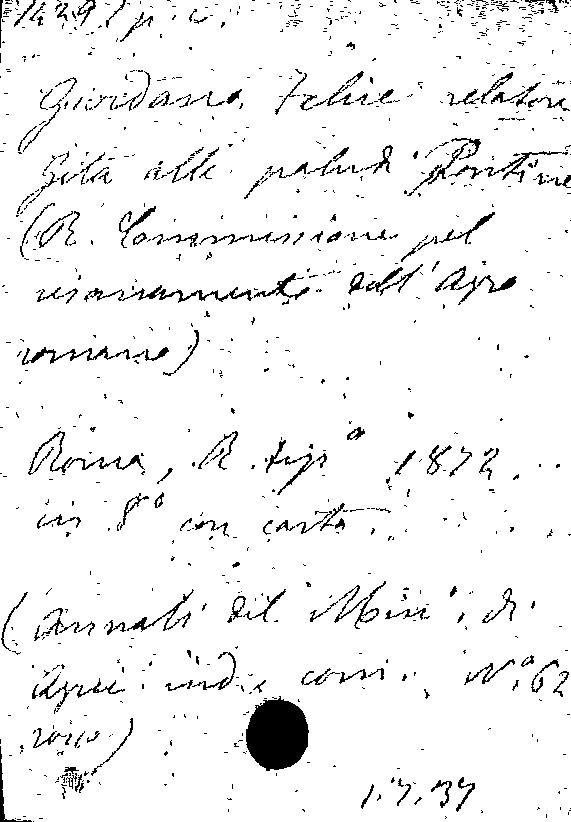 1429 / p. c.
Giordano, Felice relatore
Gita alle paludi Pontine
(R. Commissione pel
risanamento dell' Agro
romano)
Roma, R. tip° 1872
in 8° con carta.
(Annali del Min. di
Agric ind e com. N.° 62
1.7.37